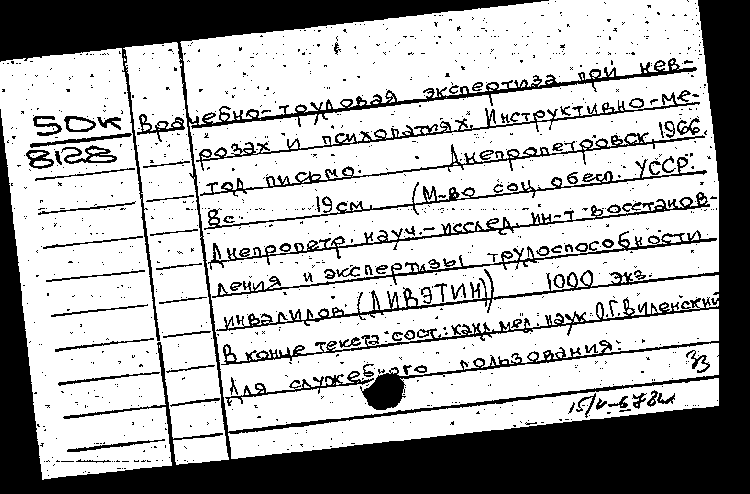 50к
8128
Врачебно-трудовая экспертиза при нев-
розах и психопатиях. Инструктивно-ме-
тод письмо. Днепропетровск, 1966.
8с. 19см. (М-во соц. обесп. УССР.
Днепропетр. науч.-исслед. ин-т восстанов-
ления и экспертизы трудоспособности
инвалидов (ДИВЭТИН)) 1000 экз.
В конце текста: сост.: канд. мед. наук О.Г. Виленский
Для служебного пользования.